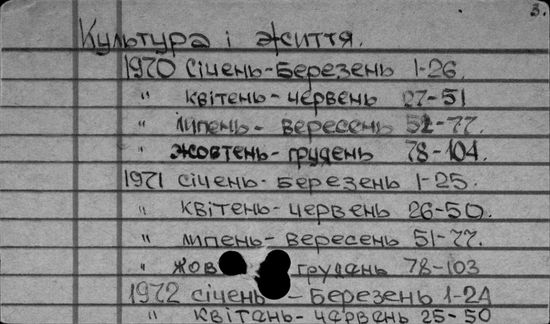 3.
Культура і життя.
1970 січень-березень 1-26.
" квітень-червень 27-51
" липень- вересень 52-77.
" жовтень-грудень 78-104.
1971 січень-березень 1-25.
" квітень-червень 26-50.
" липень-вересень 51-77.
" жов грудань 78-103
1972 січень -березень 1-24
" квітань-чарвань 25-50